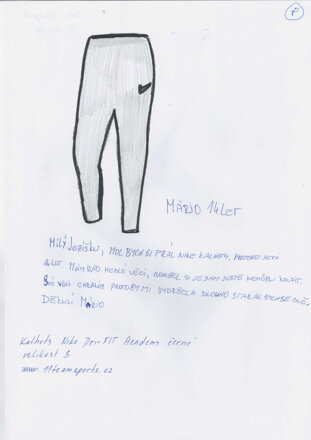 P
MÁRIO 14 LET
MILÝ JEŽÍŠKU, MOC BYCH SI PŘÁL NIKE KALHOTY, PROTOŽE JE MI
14 LET. MÁM RÁD HEZKÉ VĚCI, BOHUŽEL SI JE SÁM JEŠTĚ NEMŮŽU KOUPIT.
SVÉ VĚCI CHRÁNÍM PROTO BY MI VYDRŽELA DLOUHO STARAL BYCH SE O NĚ.
DĚKUJI MÁRIO
Kalhoty Nike Dri-FIT Academy černé
velikost S
www.11teamsports.cz